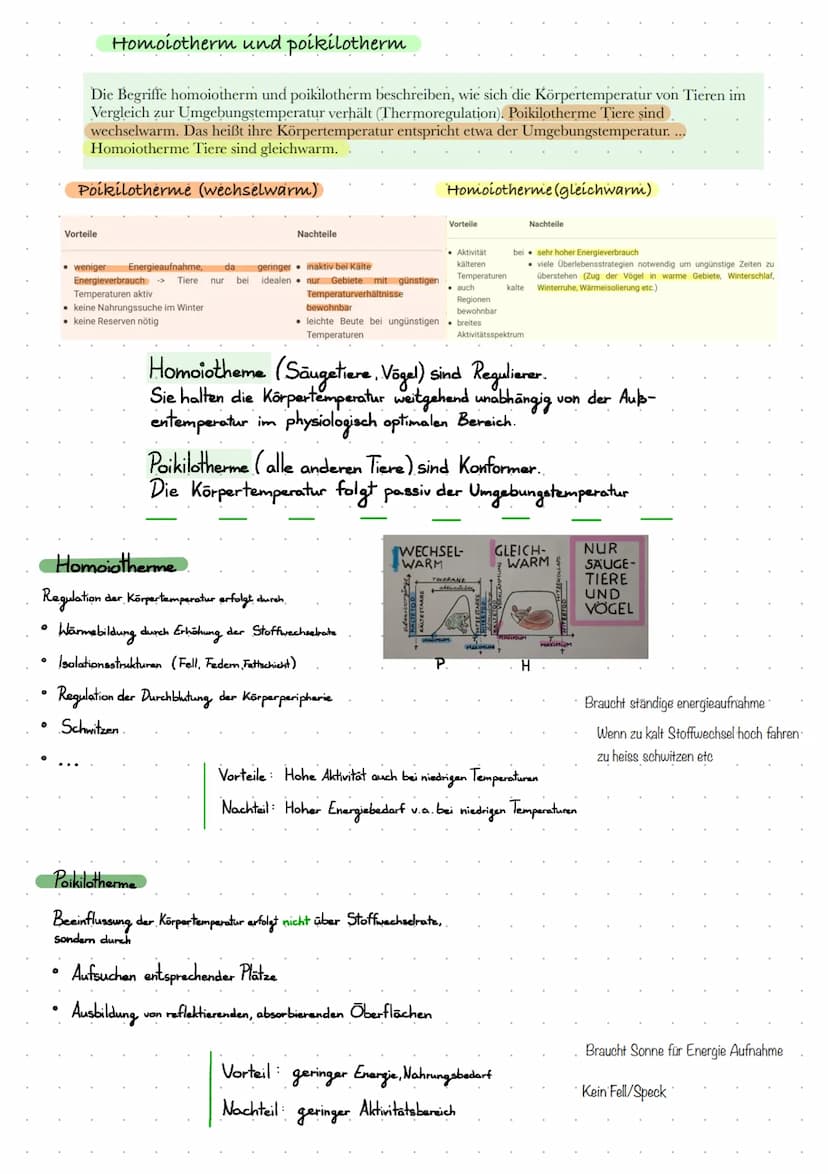 Homoiotherm und poikilotherm
Die Begriffe homoiotherm und poikilotherm beschreiben, wie sich die Körpertemperatur von Tieren im
Vergleich zur Umgebungstemperatur verhält (Thermoregulation). Poikilotherme Tiere sind
wechselwarm. Das heißt ihre Körpertemperatur entspricht etwa der Umgebungstemperatur. ...
Homoiotherme Tiere sind gleichwarm.
Poikilotherme (wechselwarm)
Vorteile
• weniger Energieaufnahme, da geringer
Energieverbrauch -> Tiere nur bei idealen
Temperaturen aktiv
• keine Nahrungssuche im Winter
• keine Reserven nötig
Nachteile
• inaktiv bei Kälte
• nur Gebiete mit günstigen
Temperaturverhältnisse
bewohnbar
• leichte Beute bei ungünstigen
Temperaturen
Homoiotherme (gleichwarm)
Vorteile
• Aktivität bei
kälteren
Temperaturen
• auch kalte
Regionen
bewohnbar
• breites
Aktivitätsspektrum
Nachteile
• sehr hoher Energieverbrauch
• viele Überlebensstrategien notwendig um ungünstige Zeiten zu
überstehen (Zug der Vögel in warme Gebiete, Winterschlaf,
Winterruhe, Wärmeisolierung etc.)
Homoiotheme (Säugetiere, Vögel) sind Regulierer.
Sie halten die Körpertemperatur weitgehend unabhängig von der Auß-
entemperatur im physiologisch optimalen Bereich.
Poikilotherme (alle anderen Tiere) sind Konformer.
Die Körpertemperatur folgt passiv der Umgebungstemperatur
Homoiotherme
Regulation der Körpertemperatur erfolgt durch
• Wärmebildung durch Erhöhung der Stoffwechselrate
• Isolationsstrukturen (Fell, Federn, Fettschicht)
• Regulation der Durchblutung der Körperperipherie
• Schwitzen
• ...
WECHSEL-
WARM
TOLERANZ
KÄLTETOD
KÄLTESTARRE
MINIMUM
MAXIMUM
GLEICH-
WARM
MINIMUM
MAXIMUM
NUR
SÄUGE-
TIERE
UND
VÖGEL
P
H
Braucht ständige energieaufnahme
Wenn zu kalt Stoffwechsel hoch fahren
zu heiss schwitzen etc
Vorteile: Hohe Aktivität auch bei niedrigen Temperaturen
Nachteil: Hoher Energiebedarf v.a. bei niedrigen Temperaturen
Poikilotherme
Beeinflussung der Körpertemperatur erfolgt nicht über Stoffwechselrate,
sondern durch
• Aufsuchen entsprechender Plätze
• Ausbildung von reflektierenden, absorbierenden Oberflächen
Vorteil: geringer Energie, Nahrungsbedarf
Nachteil: geringer Aktivitätsbereich
Braucht Sonne für Energie Aufnahme
Kein Fell/Speck